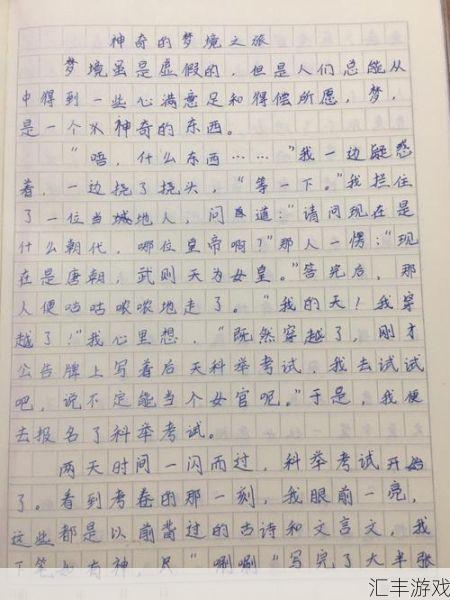 神奇的梦境之旅
梦境虽是虚假的，但是人们总能从
中得到一些心满意足和得偿所愿，梦，
是一个神奇的东西。
“唔，什么东西……”我一边疑惑
着，一边挠了挠头，“等一下。”我拦住
了一位当地人，问道：“请问现在是
什么朝代，哪位皇帝啊？”那人一愣：“现
在是唐朝，武则天为女皇。”答完后，那
人便咕咕哝哝地走了。“我的天！我穿
越了！”我心里想，“既然穿越了，刚才
公告牌上写着后天科举考试，我去试试
吧，说不定能当个女官呢。”于是，我便
去报名了科举考试。
两天时间一闪而过，科举考试开始
了。看到考卷的那一刻，我眼前一亮，
这些都是以前背过的古诗和文言文，我
下笔如有神，只“唰唰”写完了大半张
汇丰游戏